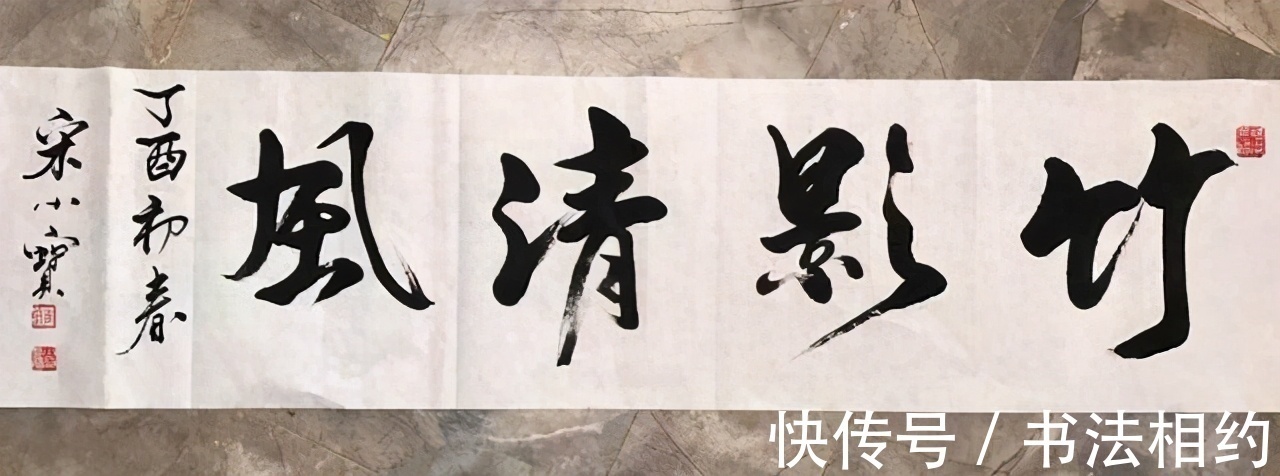 竹影清風
丁酉初春
宋小寶
快传号 / 书法相约